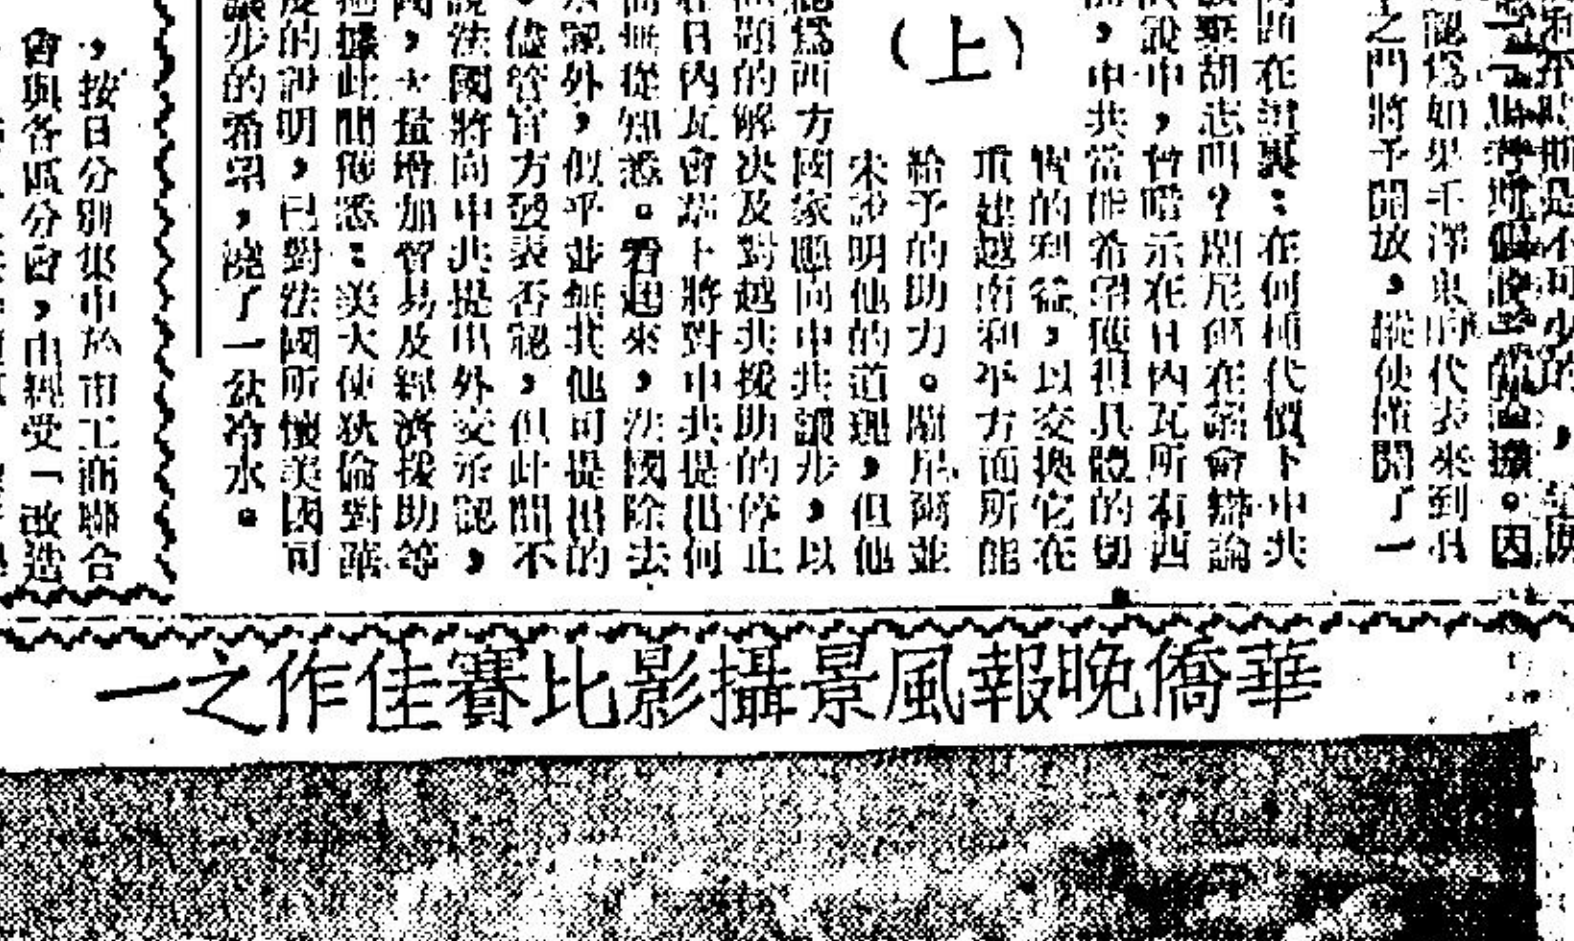 認爲如果毛澤東的代表來到日
之門將予開放，縱使僅開了一
（上）
在這裏：在何種代價下中共
放棄胡志明？蘭尼爾在議會辯論
說中，曾暗示在日內瓦所有西
，中共當能希望獲得具體的切
實的利益，以交換它在
重建越南和平方面所能
給予的助力。蘭尼爾並
未說明他的道理，但他
認爲西方國家應向中共讓步，以
問題的解決及對越共援助的停止
在日內瓦會議上將對中共提出何
尚無從知悉。看起來，法國除去
承認外，似乎並無其他可提出的
。儘管官方發表否認，但此間不
說法國將向中共提出外交承認，
國，大量增加貿易及經濟援助等
據此間獲悉：美大使狄倫對華
度的說明，已對法國所懷美國可
讓步的希望，澆了一盆冷水。
，按日分別集中於市工商聯合
會與各區分會，由經受「改造
華僑晚報風景攝影比賽佳作之一